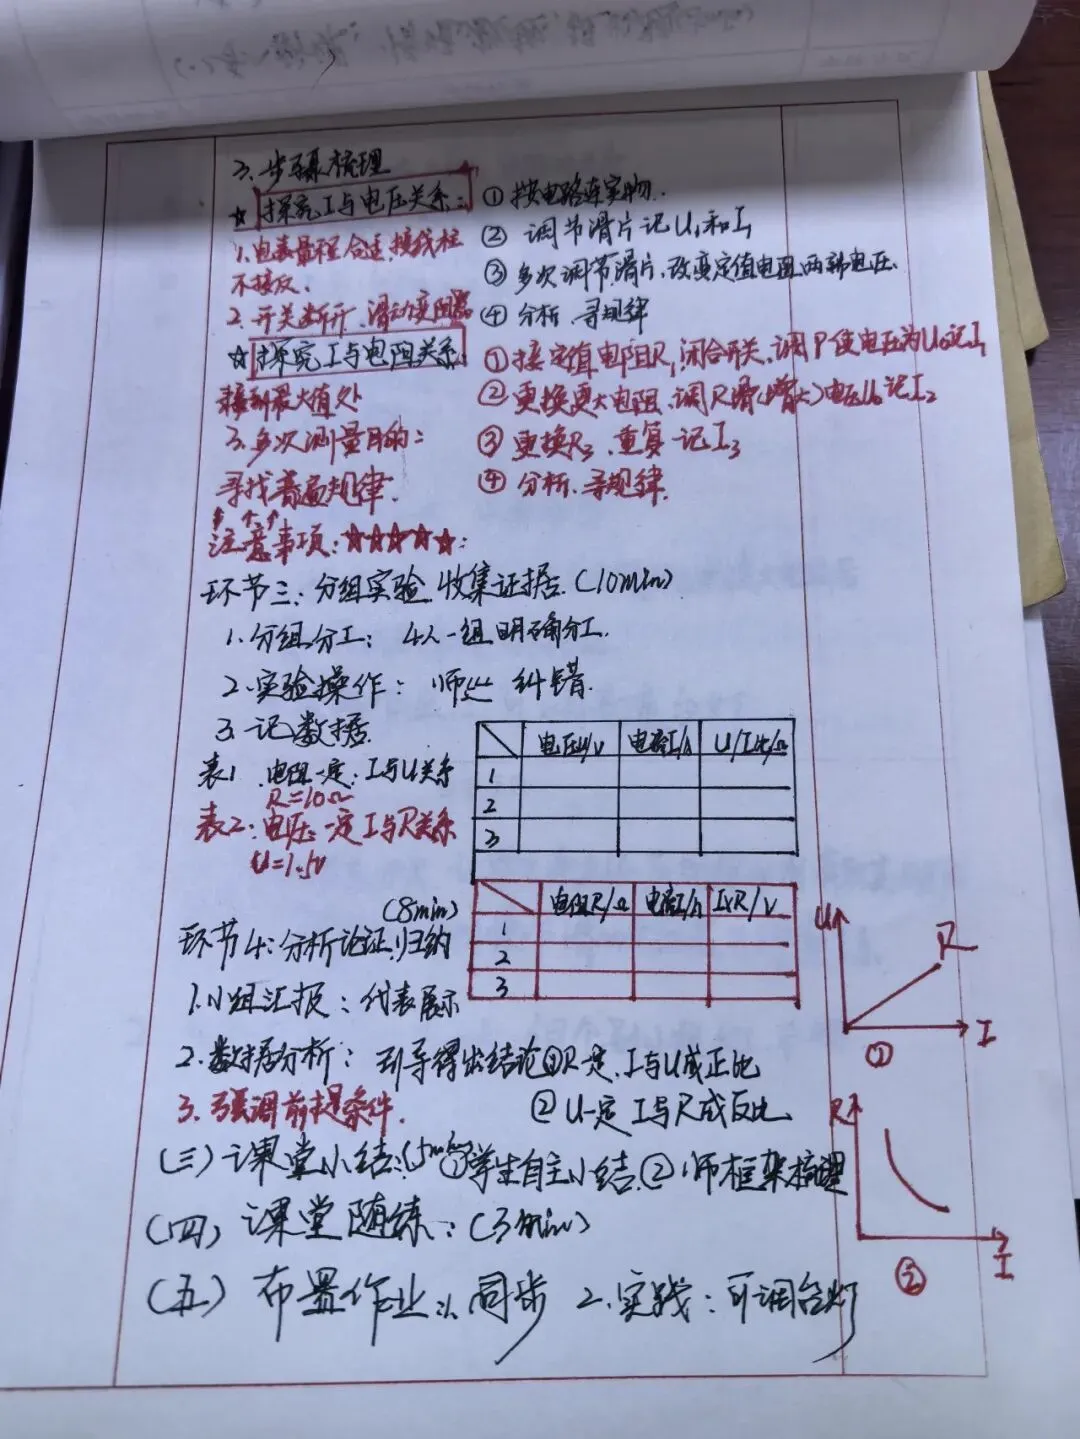 3. 步骤梳理
☆ 探究I与电压关系: ① 按电路连实物.
1. 电表量程合适, 接线柱 ② 调节滑片记U₁和I₁
不接反. ③ 多次调节滑片, 改变定值电阻两端电压.
2. 开关断开, 滑动变阻器 ④ 分析、寻规律
☆ 探究I与电阻关系: ① 接定值电阻R₁, 闭合开关, 调P使电压为U₀记I₁
接到最大值处 ② 更换更大电阻, 调R滑(增大)电压U₀记I₂
3. 多次测量目的: ③ 更换R₃, 重复记I₃
寻找普遍规律. ④ 分析、寻规律.
注意事项: ☆☆☆☆☆:
环节三: 分组实验, 收集证据. (10min)
1. 分组分工: 4人一组, 明确分工.
2. 实验操作: 师巡 纠错.
3. 记数据
表1. 电阻一定: I与U关系
R=10Ω
表2: 电压一定I与R关系
U=1.5V
电压U/V 电流I/A U/I比/Ω
1
2
3
电阻R/Ω 电流I/A I×R/V
1
2
3
(8min)
环节4: 分析论证, 归纳
1. 小组汇报: 代表展示
2. 数据分析: 引导得出结论①R一定, I与U成正比
3. 强调前提条件. ② U一定 I与R成反比
U R I
①
R I
②
(三) 课堂小结: (5min)①学生自主小结, ② 师框架梳理
(四) 课堂随练: (3min)
(五) 布置作业: 1. 同步 2. 实践: 可调台灯